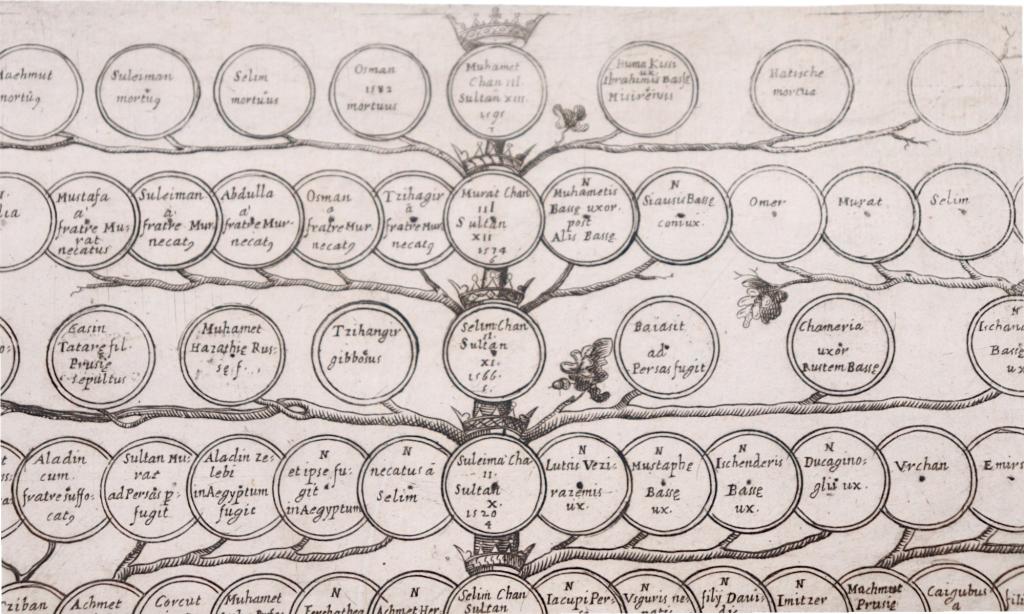 mortuꝰ
Suleiman
mortuꝰ
Selim
mortuus
Osman
1582
mortuus
Muhamet
Chan III.
Sultan XIII
1595
Huma Kissi
ux.
Ibrahimis Bassę
Misirensis
Hatische
mortua
lia
Mustafa
a
fratre Mu-
rat
necatus
Suleiman
à
fratre Mur-
necatꝰ
Abdulla
a
fratre Mur-
necatꝰ
Osman
a
fratre Mur.
necatꝰ
Tzihagir
a
fratre Mur
necatꝰ
Murat Chan
III
Sultan
XII
1574
N
Muhametis
Bassę uxor.
post
Alis Bassę.
N
Siausii Bassę
coniux.
Omer
Murat
Selim
Casin
Tatarę fil.
Prusię
sepultus
Muhamet
Harathię Rus-
sę f.
Tzihangir
gibbosus
Selim Chan
II.
Sultan
XI.
1566.
Baiasit
ad
Persas fugit
Chameria
uxor
Rustem Bassę
Bassę
ux
Aladin
cum
fratre suffo-
catꝰ
Sultan Mu-
rat
ad Persas p-
fugit
Aladin ze-
lebi
in Aegyptum
fugit
N
et ipse fu-
git
in Aegyptum
N
necatus à
Selim
Suleimā Chā
II
Sultan
X.
1520
4
N
Lutsis Vezi-
razemis
ux.
N
Mustaphę
Bassę
ux.
N
Ischenderis
Bassę
ux.
N
Ducagino-
glii ux.
Vrchan
Emirs
Achmet
Corcut
Muhamet
N
N
Achmet Her
Selim Chan
Sultan
N
Iacupi Per-
N
Vsguris ne-
N
filij Daui-
N
Imirzer
Machmut
Prusię
Caigubus